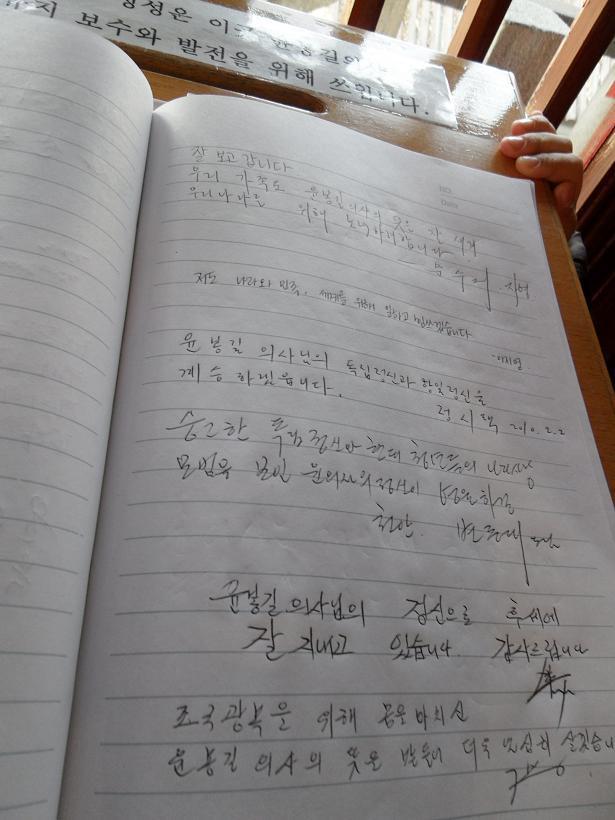 성은 이곳 윤봉길의
지 보수와 발전을 위해 쓰입니다.
NO.
Date
잘 보고 갑니다
우리 가족도 윤봉길의사의 뜻을
우리나라를 위해 노력하겠습니다
저도 나라와 민족, 세계를 위해 일하고 힘쓰겠습니다
윤봉길 의사님의 독립정신과 항일정신을
계승하겠습니다.
정시택 2010.2.2
숭고한 독립정신과 현대 청년들의 나라사랑
모범을 보인 윤의사의 정신이 영원하길
천안.
윤봉길 의사님의 정신으로 후세에
잘 지내고 있습니다. 감사드립니다
조국광복을 위해 몸을 바치신
윤봉길 의사의 뜻을 받들어 더욱 열심히 살겠습니